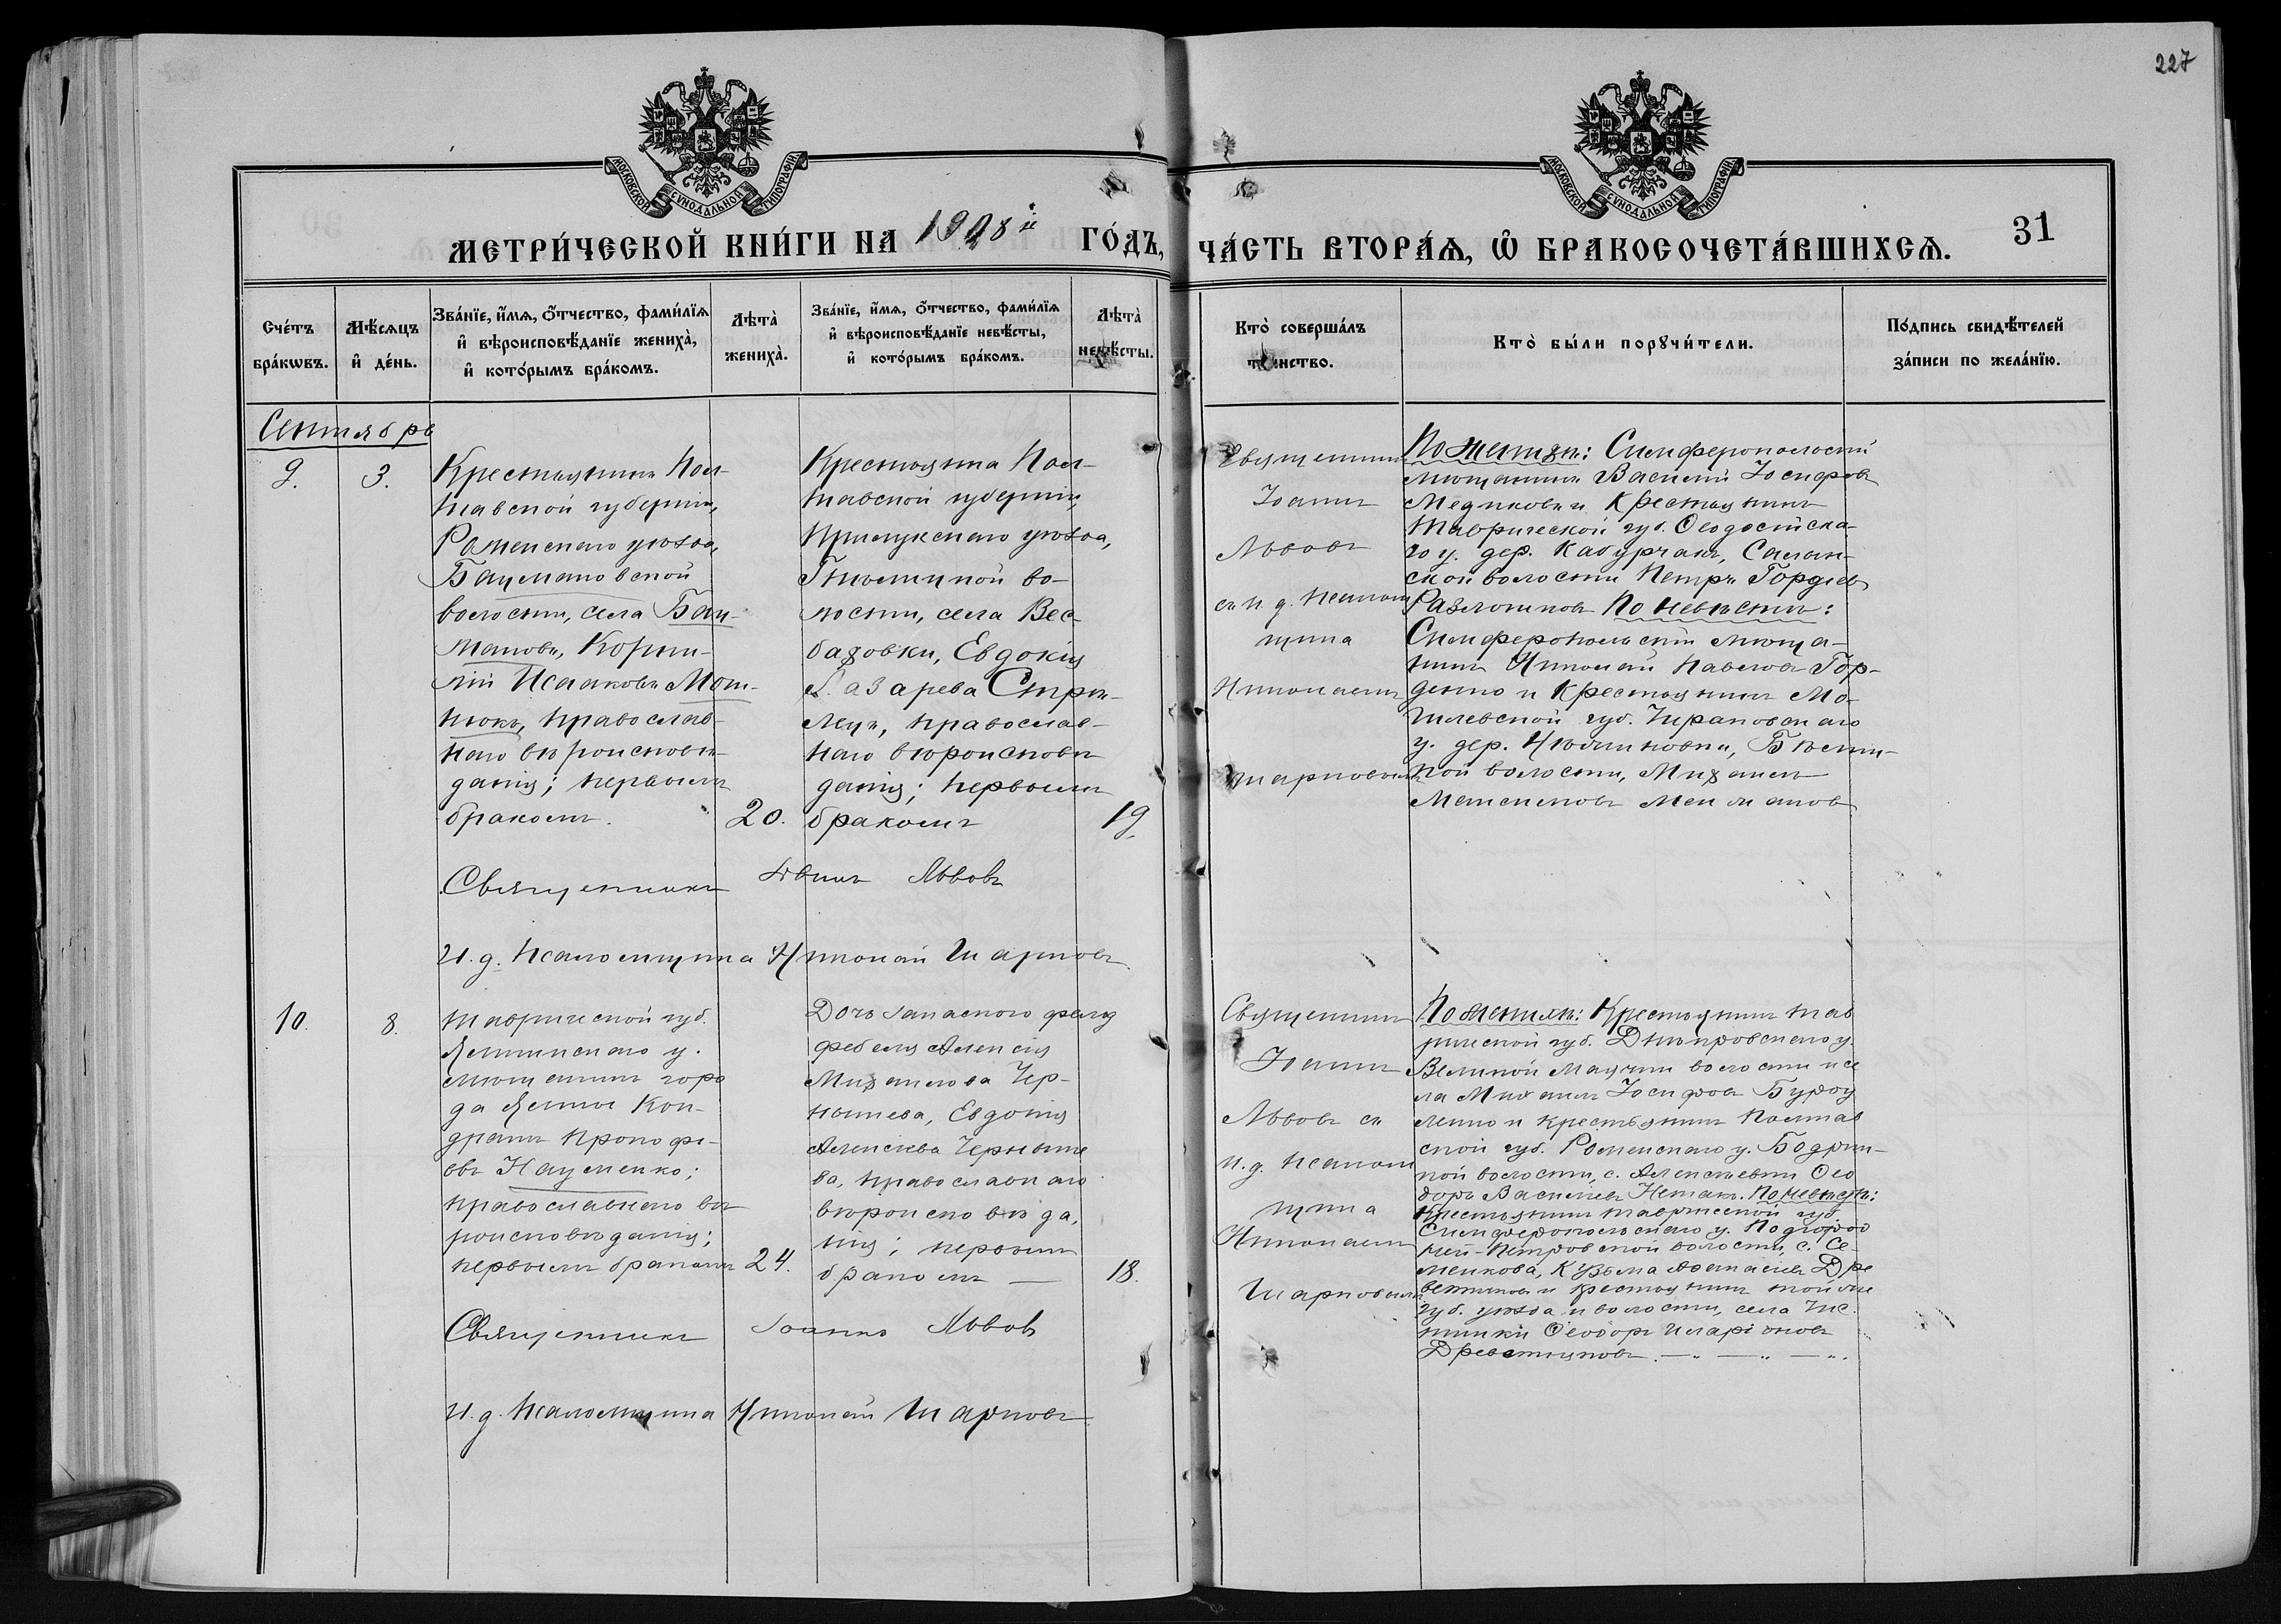 227
МОСКОВСКОЙ СѴНОДАЛЬНОЙ ТИПОГРАФІИ
МОСКОВСКОЙ СѴНОДАЛЬНОЙ ТИПОГРАФІИ
МЕТРИ́ЧЕСКОЙ КНИ́ГИ НА 1908й ГО́ДЪ,
ЧА́СТЬ ВТОРА́Ѧ, Ѿ БРАКОСОЧЕТА́ВШИХСѦ.
31
Сче́тъ бра́кѡвъ.
Мѣ́сѧцъ и҆ де́нь.
Зва́нїе, и҆́мѧ, ѻ҆́тчество, фами́лїѧ
и҆ вѣроисповѣ́данїе жениха̀,
и҆ кото́рымъ бра́комъ.
Лѣта̀ жениха̀.
Зва́нїе, и҆́мѧ, ѻ҆́тчество, фами́лїѧ
и҆ вѣроисповѣ́данїе невѣ́сты,
и҆ кото́рымъ бра́комъ.
Лѣта̀ невѣ́сты.
Кто̀ соверша́лъ
таинство.
Кто̀ бы́ли порꙋчи́тели.
По́дпись свидѣ́телей
за́писи по жела́нїю.
Сентябрь
9.
3.
Крестьянинъ Пол-
тавской губерніи,
Роменскаго уѣзда,
Бацмановской
волости, села Бац-
манова, Корни-
лій Исааковъ Мот-
нюкъ, православ-
наго вѣроисповѣ-
данія; первымъ
бракомъ.
20.
Крестьянка Пол-
тавской губерніи,
Прилукскаго уѣзда,
Гнѣтицкой во-
лости, села Вес-
баховки, Евдокія
Лазарева Стрѣ-
лецъ, православ-
наго вѣроисповѣ
данія; первымъ
бракомъ
19.
Священникъ
Іоаннъ
Львовъ
съ и. д. псалом
щика
Николаемъ
Шарповымъ
По женихѣ: Симферопольскій
мѣщанинъ Василій Іосифовъ
Медиковъ и Крестьянинъ
Таврической губ. Ѳеодосійска-
го у. дер. Кабурчакъ, Салын-
ской волости Петръ Гордѣевъ
Разлогиновъ По невѣстѣ:
Симферопольскій мѣща-
нинъ Николай Павловъ Гор-
денко и Крестьянинъ Мо-
гилевской губ. Чираповскаго
у. дер.
кой волости, Михаилъ
Священникъ Іоаннъ Львовъ
И. д. Псаломщика Николай Шарповъ.
10.
8.
Таврической губ.
Ялтинскаго у.
мѣщанинъ горо
да Ялты Кон-
дратъ Прокофі-
евъ Науменко;
православнаго вѣ
роисповѣданія;
первымъ бракомъ
24.
Дочь запаснаго фельд
фебеля Алексія
Михайлова Чер-
нышева, Евдокія
Алексѣева Черныше
ва, православнаго
вѣроисповѣда,
нія; первымъ
бракомъ —
18.
Священникъ
Іоаннъ
Львовъ съ
и. д. псалом
щика
Николаемъ
Шарповымъ
По женихѣ: Крестьянинъ Тав
рической губ. Днѣпровскаго у.
Великой Маячки волости и се
ла Михаилъ Іосифовъ Бурду
ленко и крестьянинъ Полтав
ской губ. Роменскаго у. Бодрин-
кой волости, с. Алексѣевки Ѳео
доръ Василіевъ Неткачъ. По невѣстѣ:
Крестьянинъ Таврической губ.
Симферопольскаго у. Подгород
ней-Петровской волости, с. Се-
менкова, Кузьма Аѳанасіевъ Дре
ветняковъ и крестьянинъ той же
губ. уѣзда и волости, села Чис-
тиньки Ѳеодоръ Иларіоновъ
Древетняковъ. — " — " — ".
Священникъ Іоаннъ Львовъ
И. д. Псаломщика Николай Шарповъ